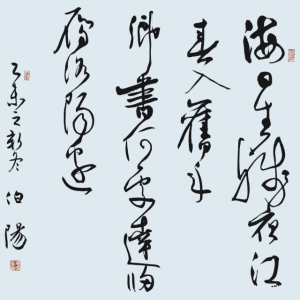 海日生殘夜江
春入舊年
鄉書何處達歸
雁洛陽邊
乙未之冬 伯陽